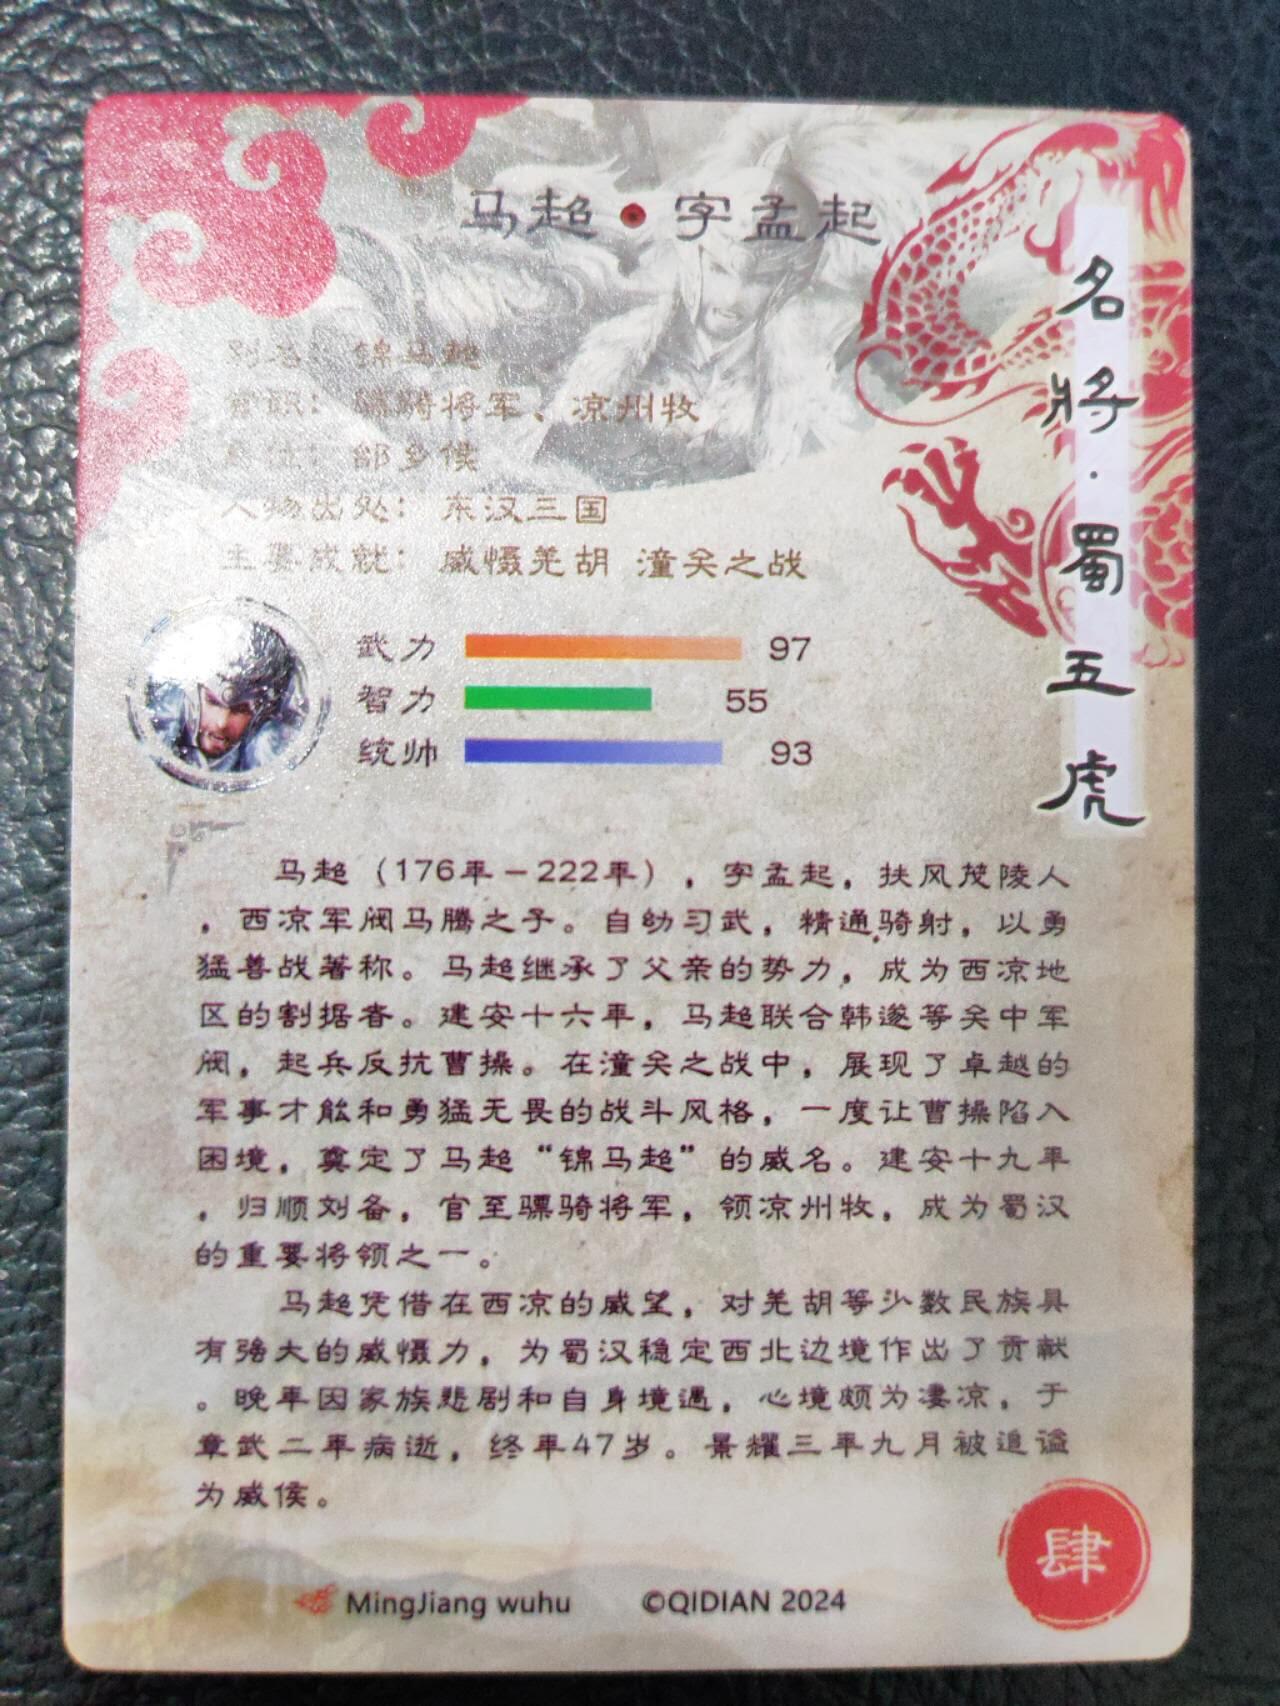 马超•字孟起
名將·蜀五虎
别名：锦马超
官职：骠骑将军、凉州牧
爵位：邰乡侯
人物出处：东汉三国
主要成就：威慑羌胡 潼关之战
武力 97
智力 55
统帅 93
马超（176年－222年），字孟起，扶风茂陵人
，西凉军阀马腾之子。自幼习武，精通骑射，以勇
猛善战著称。马超继承了父亲的势力，成为西凉地
区的割据者。建安十六年，马超联合韩遂等关中军
阀，起兵反抗曹操。在潼关之战中，展现了卓越的
军事才能和勇猛无畏的战斗风格，一度让曹操陷入
困境，奠定了马超“锦马超”的威名。建安十九年
，归顺刘备，官至骠骑将军，领凉州牧，成为蜀汉
的重要将领之一。
马超凭借在西凉的威望，对羌胡等少数民族具
有强大的威慑力，为蜀汉稳定西北边境作出了贡献
。晚年因家族悲剧和自身境遇，心境颇为凄凉，于
章武二年病逝，终年47岁。景耀三年九月被追谥
为威侯。
肆
MingJiang wuhu ©QIDIAN 2024